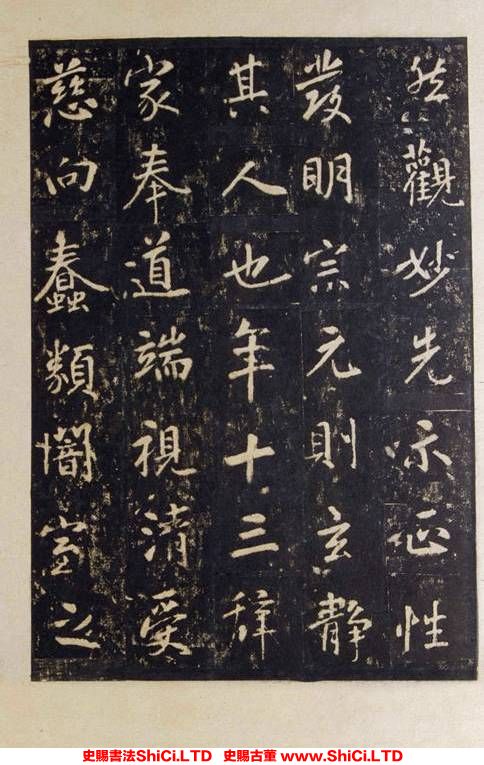 然觀妙先示正性
發明宗元則玄靜
其人也年十三辞
家奉道端視清受
慈向蠢類闇室之
史賜書法ShiCi.LTD 史賜古董 www.ShiCi.LTD